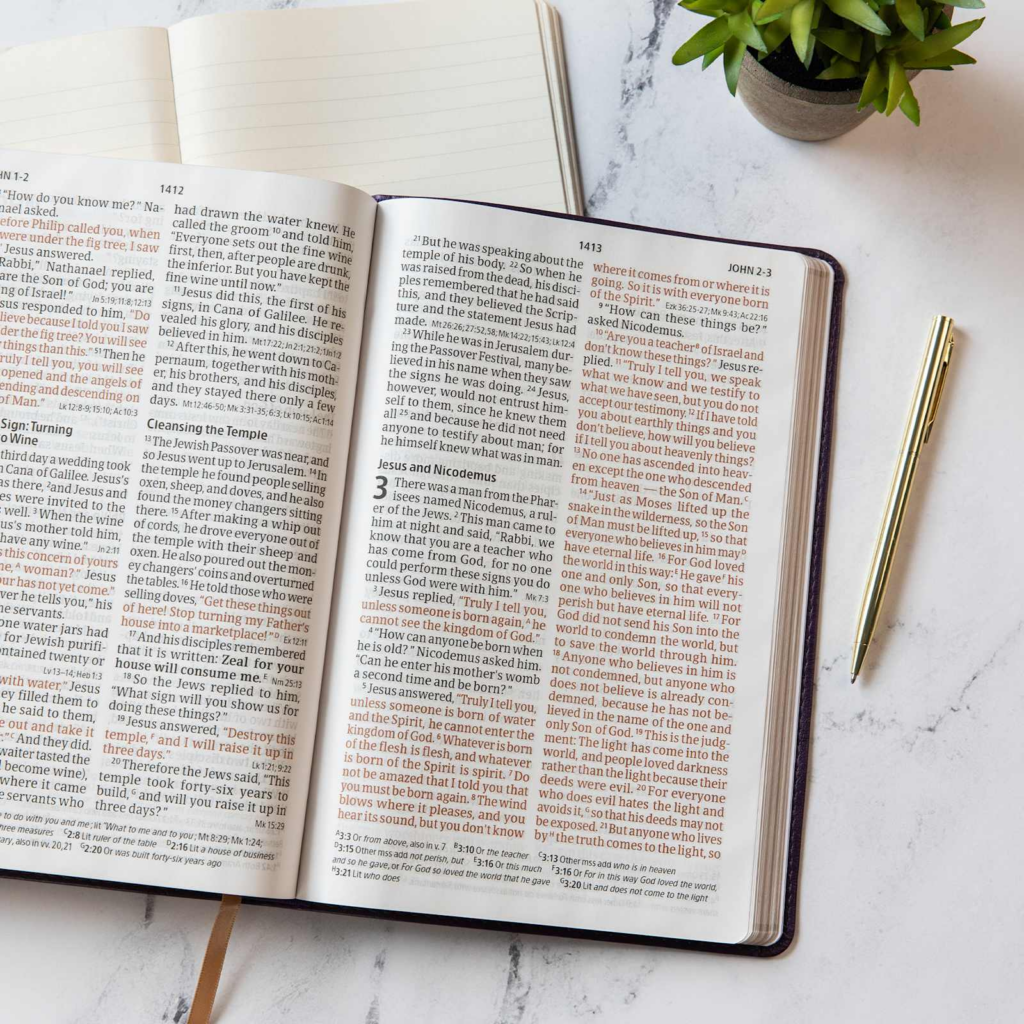 HN 1-2
1412
"How do you know me?" Na-
nael asked.
efore Philip called you, when
were under the fig tree, I saw
Jesus answered.
Rabbi," Nathanael replied,
are the Son of God; you are
ng of Israel!" Jn 5:19; 11:8; 12:13
sus responded to him, "Do
lieve because I told you I saw
der the fig tree? You will see
things than this." 51 Then he
ruly I tell you, you will see
opened and the angels of
ending and descending on
of Man." Lk 12:8-9; 15:10; Ac 10:3
Sign: Turning
o Wine
third day a wedding took
Cana of Galilee. Jesus's
as there, 2 and Jesus and
es were invited to the
s well. 3 When the wine
us's mother told him,
have any wine." Jn 2:11
s this concern of yours
e,A woman?" Jesus
our has not yet come."
er he tells you," his
he servants.
one water jars had
for Jewish purifi-
ntained twenty or
Lv 13-14; Heb 1:3
with water," Jesus
ey filled them to
he said to them,
e out and take it
."C And they did.
waiter tasted the
become wine),
where it came
e servants who
had drawn the water knew. He
called the groom 10 and told him,
"Everyone sets out the fine wine
first, then, after people are drunk,
the inferior. But you have kept the
fine wine until now."
11 Jesus did this, the first of his
signs, in Cana of Galilee. He re-
vealed his glory, and his disciples
believed in him. Mt 17:22; Jn 2:1; 21:2; 1Jn 1:2
12 After this, he went down to Ca-
pernaum, together with his moth-
er, his brothers, and his disciples,
and they stayed there only a few
days. Mt 12:46-50; Mk 3:31-35; 6:3; Lk 10:15; Ac 1:14
Cleansing the Temple
13 The Jewish Passover was near, and
so Jesus went up to Jerusalem. 14 In
the temple he found people selling
oxen, sheep, and doves, and he also
found the money changers sitting
there. 15 After making a whip out
of cords, he drove everyone out of
the temple with their sheep and
oxen. He also poured out the mon-
ey changers' coins and overturned
the tables. 16 He told those who were
selling doves, "Get these things out
of here! Stop turning my Father's
house into a marketplace!"D Ex 12:11
17 And his disciples remembered
that it is written: Zeal for your
house will consume me.E Nm 25:13
18 So the Jews replied to him,
"What sign will you show us for
doing these things?"
19 Jesus answered, "Destroy this
temple,F and I will raise it up in
three days." Lk 1:21; 9:22
20 Therefore the Jews said, "This
temple took forty-six years to
build,G and will you raise it up in
three days?" Mk 15:29
to do with you and me; lit "What to me and to you; Mt 8:29; Mk 1:24;
hree measures C2:8 Lit ruler of the table D2:16 Lit a house of business
ary, also in vv. 20,21 G2:20 Or was built forty-six years ago
1413
JOHN 2-3
21 But he was speaking about the
temple of his body. 22 So when he
was raised from the dead, his disci-
ples remembered that he had said
this, and they believed the Scrip-
ture and the statement Jesus had
made. Mt 26:26; 27:52,58; Mk 14:22; 15:43; Lk 12:4
23 While he was in Jerusalem dur-
ing the Passover Festival, many be-
lieved in his name when they saw
the signs he was doing. 24 Jesus,
however, would not entrust him-
self to them, since he knew them
all 25 and because he did not need
anyone to testify about man; for
he himself knew what was in man.
Jesus and Nicodemus
3 There was a man from the Phar-
isees named Nicodemus, a rul-
er of the Jews. 2 This man came to
him at night and said, "Rabbi, we
know that you are a teacher who
has come from God, for no one
could perform these signs you do
unless God were with him." Mk 7:3
3 Jesus replied, "Truly I tell you,
unless someone is born again,A he
cannot see the kingdom of God."
4 "How can anyone be born when
he is old?" Nicodemus asked him.
"Can he enter his mother's womb
a second time and be born?"
5 Jesus answered, "Truly I tell you,
unless someone is born of water
and the Spirit, he cannot enter the
kingdom of God. 6 Whatever is born
of the flesh is flesh, and whatever
is born of the Spirit is spirit. 7 Do
not be amazed that I told you that
you must be born again. 8 The wind
blows where it pleases, and you
hear its sound, but you don't know
where it comes from or where it is
going. So it is with everyone born
of the Spirit." Ezk 36:25-27; Mk 9:43; Ac 22:16
9 "How can these things be?"
asked Nicodemus.
10 "Are you a teacherB of Israel and
don't know these things?" Jesus re-
plied. 11 "Truly I tell you, we speak
what we know and we testify to
what we have seen, but you do not
accept our testimony. 12 If I have told
you about earthly things and you
don't believe, how will you believe
if I tell you about heavenly things?
13 No one has ascended into heav-
en except the one who descended
from heaven — the Son of Man.C
14 "Just as Moses lifted up the
snake in the wilderness, so the Son
of Man must be lifted up, 15 so that
everyone who believes in him mayD
have eternal life. 16 For God loved
the world in this way:E He gaveF his
one and only Son, so that every-
one who believes in him will not
perish but have eternal life. 17 For
God did not send his Son into the
world to condemn the world, but
to save the world through him.
18 Anyone who believes in him is
not condemned, but anyone who
does not believe is already con-
demned, because he has not be-
lieved in the name of the one and
only Son of God. 19 This is the judg-
ment: The light has come into the
world, and people loved darkness
rather than the light because their
deeds were evil. 20 For everyone
who does evil hates the light and
avoids it,G so that his deeds may not
be exposed. 21 But anyone who lives
byH the truth comes to the light, so
A3:3 Or from above, also in v. 7 B3:10 Or the teacher C3:13 Other mss add who is in heaven
D3:15 Other mss add not perish, but E3:16 Or this much F3:16 Or For in this way God loved the world,
and so he gave, or For God so loved the world that he gave G3:20 Lit and does not come to the light
H3:21 Lit who does